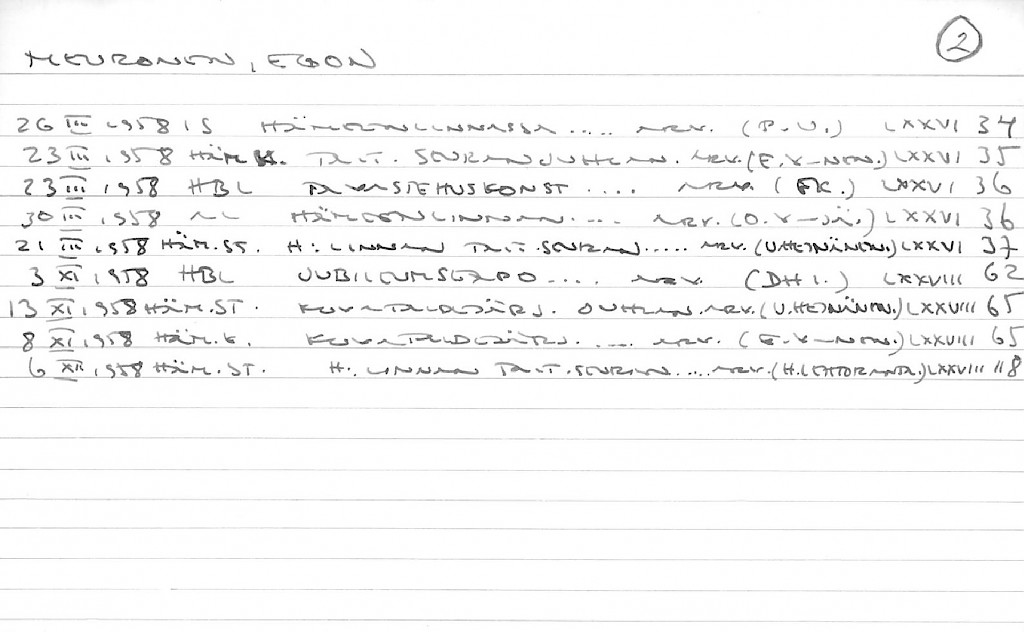 MEURONEN, EGON 2
26 III 1958 IS HÄMEENLINNASSA .... ARV. (P.V.) LXXVI 34
23 III 1958 HÄM K. TAIT. SEURAN JUHLAN. ARV. (E.V-NEN.) LXXVI 35
23 III 1958 HBL TAVASTEHUSKONST .... ARV. (EK.) LXXVI 36
30 III 1958 HÄMEENLINNAN .... ARV. (O.V-JÄ.) LXXVI 36
21 III 1958 HÄM. ST. H:LINNAN TAIT. SEURAN ..... ARV. (U.HEINÄNEN.) LXXVI 37
3 XI 1958 HBL JUBILEUMSEXPO .... ARV. (DHI.) LXXVIII 62
13 XI 1958 HÄM. ST. KUVATAIDEJÄRJ. JUHLAN. ARV. (U.HEINÄNEN.) LXXVIII 65
8 XI 1958 HÄM. K. KUVATAIDEJÄRJ. .... ARV. (E.V-NEN.) LXXVIII 65
6 XII 1958 HÄM. ST. H:LINNAN TAIT. SEURAN .... ARV. (H.LEHTORANTA.) LXXVIII 118